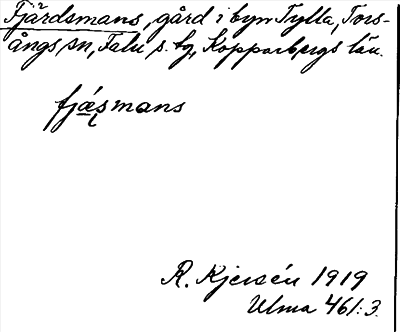 Fjärdsmans, gård i byn Tylla, Tors-
ångs sn, Falu s. tg, Kopparbergs län.
fjǽsmans
R. Kjersén 1919
Ulma 461:3.